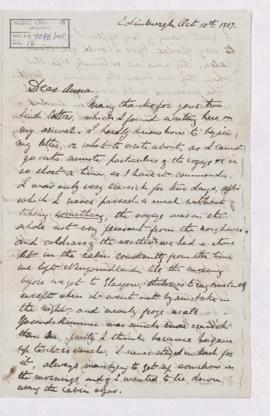 Edinburgh Oct 10th 1907.
Dear Anna.
Many thanks for your two
kind letters, which I found waiting here on
my arrival. I hardly know how to begin
my letter, or what to write about, as I cannot
go into minute particulars of the voyage &c in
so short a time as I have at command.
I was only very sea-sick for two days, after
which I never passed a meal without
taking something, the voyage was on the
whole not very pleasant from the roughness
and coldness of the weather we had a stove
lit in the cabin constantly from the time
we left Newfoundland till the morning
before we got to Glasgow,
except when it went out by mistake in
the night and nearly froze us all.
was much more sea sick
than me partly I think because he gave
up to it so much. I never stayed in bed for
it, always managing to get up somehow in
the mornings, and if I wanted to lie down
using the cabin sofas.